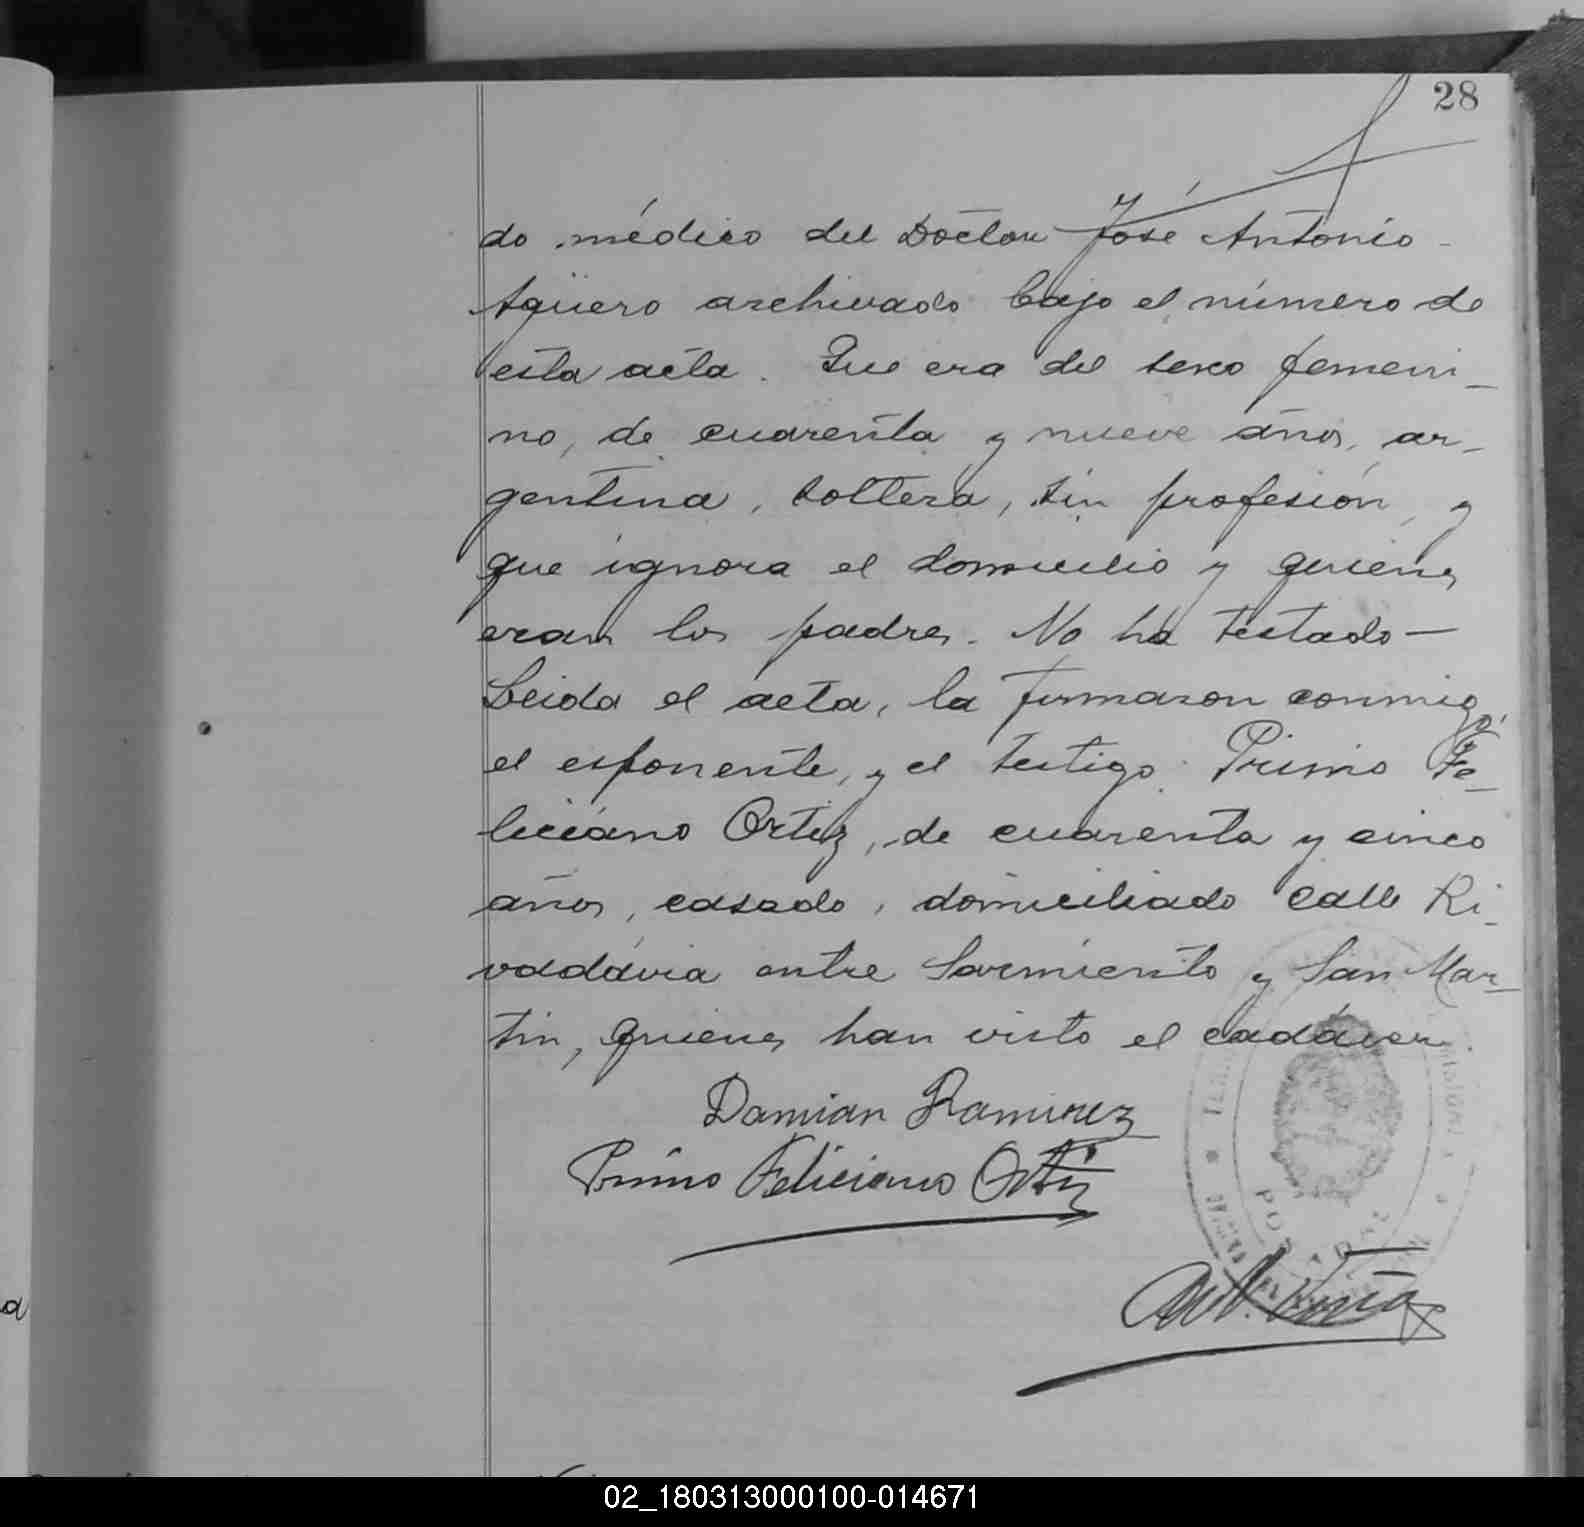 28
do médico del Doctor José Antonio
Agüero archivado bajo el número de
esta acta. Que era del sexo femeni-
no, de cuarenta y nueve años, ar-
gentina, soltera, sin profesión, y
que ignora el domicilio y quienes
eran los padres. No ha testado—
Leida el acta, la firmaron conmigo,
el esponente, y el testigo Primo Fe-
liciano Ortiz, de cuarenta y cinco
años, casado, domiciliado calle Ri-
vadavia entre Sarmiento y San Mar-
tin, quienes han visto el cadáver.
Damian Ramirez
Primo Feliciano Ortiz
POSADAS
02_180313000100-014671